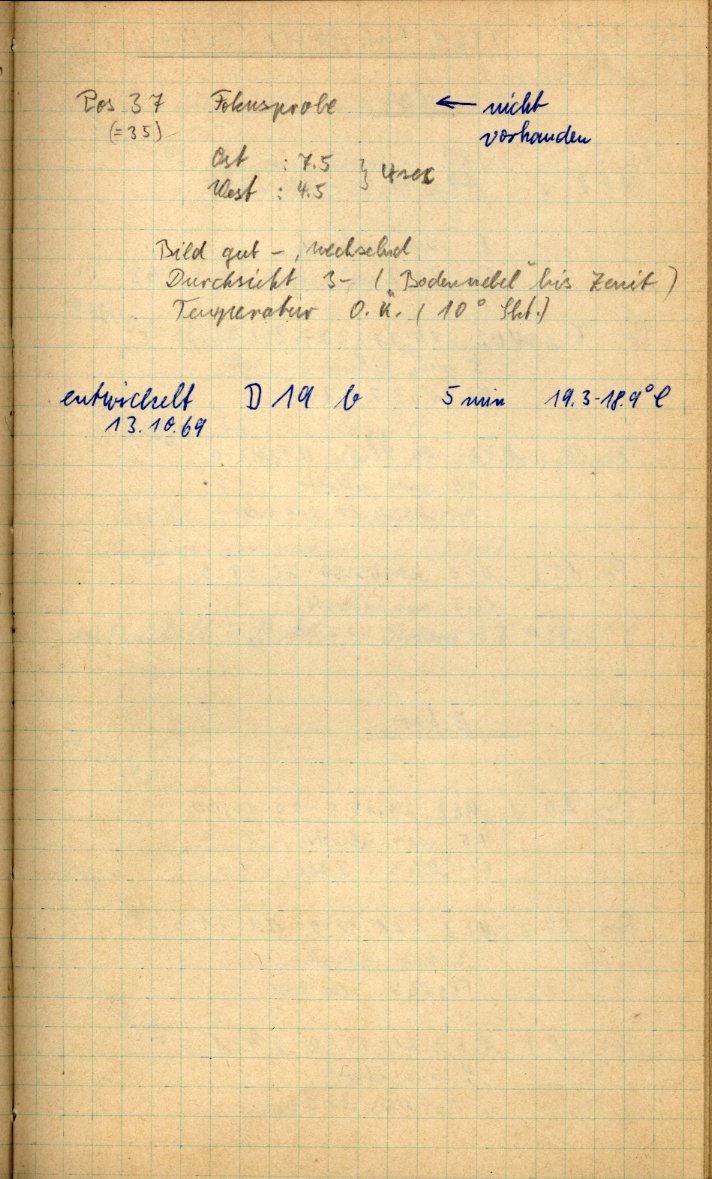 Pos 37 Fokusprobe ← nicht
(=35) vorhanden
Ost : 7.5 } 4 sec
West : 4.5
Bild gut -, wechselnd
Durchsicht 3- ( „Bodennebel“ bis Zenit )
Temperatur O.K. ( 10° Skt.)
entwickelt D 19 b 5 min 19.3-18.9° C
13.10.69